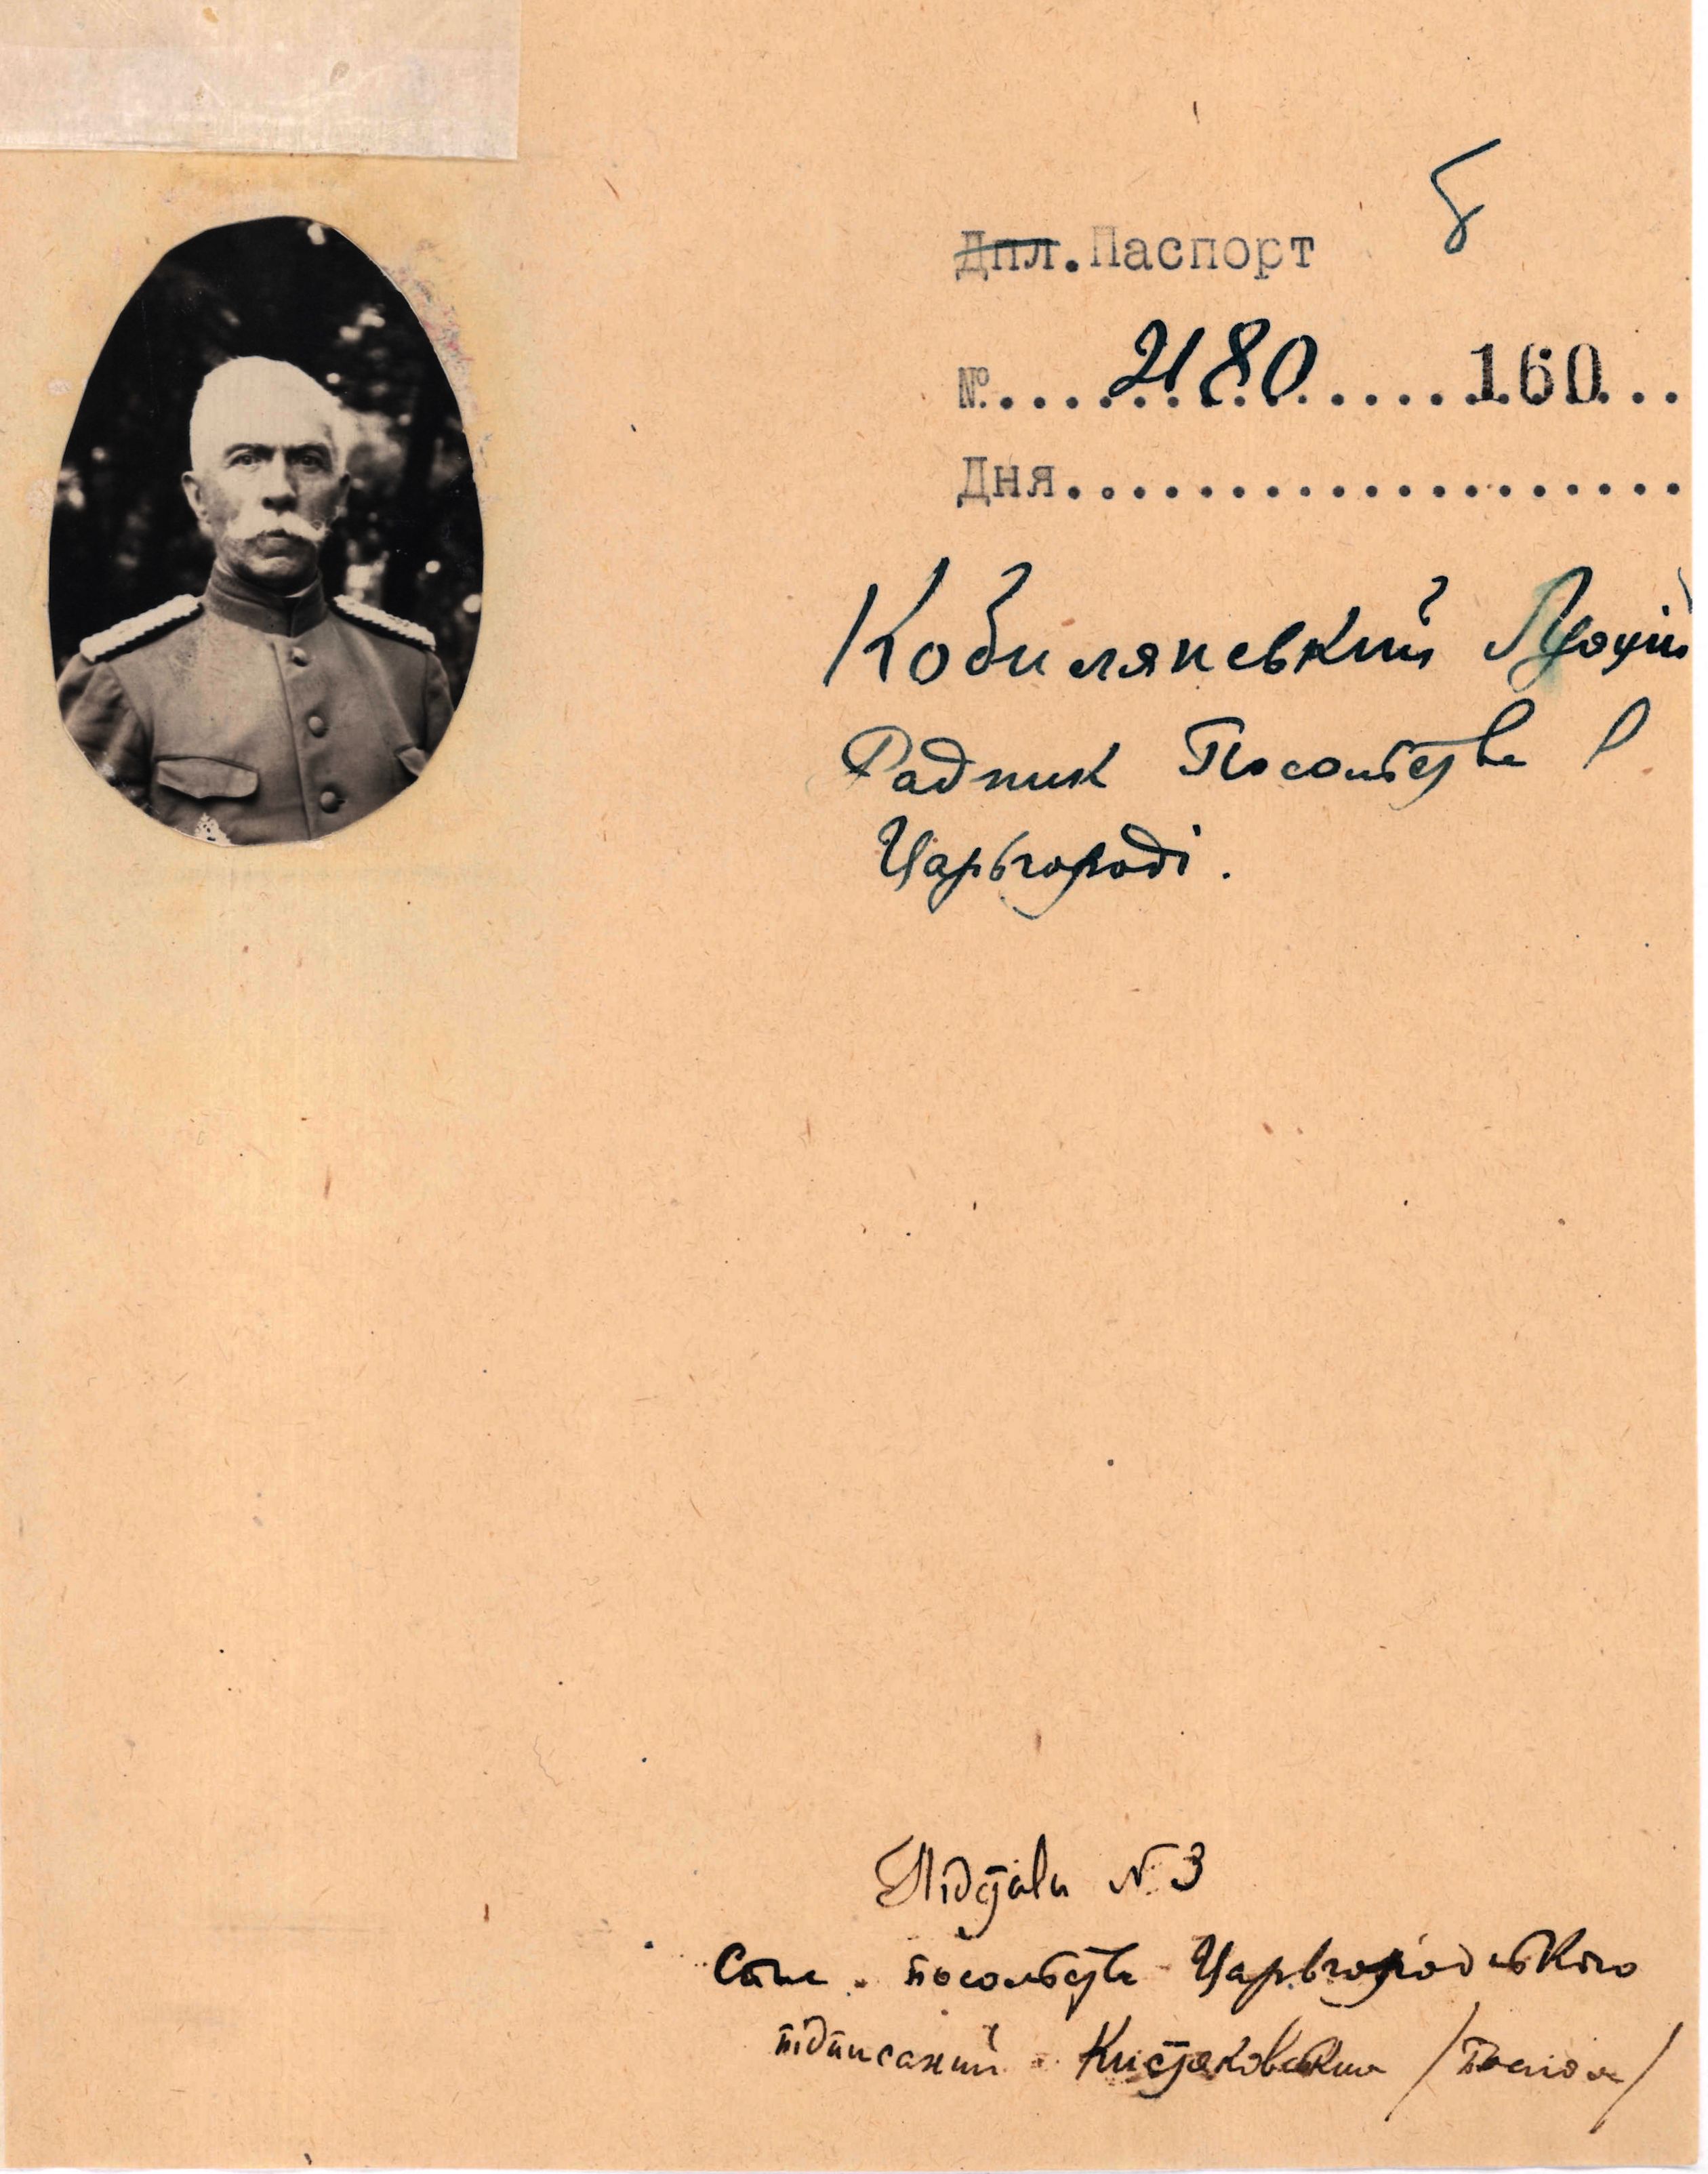 б
Дпл. Паспорт
№....2180.....160...
Дня...................
Кобилянський Луцій
Радник Посольства в
Царьгороді.
Підстави № 3
Спис. посольства Царьгородського
підписаний Кистяковським /Посол/